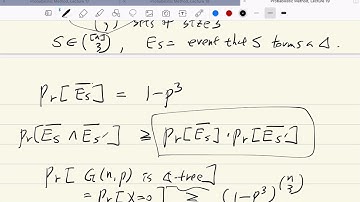 Probabilistic Method, Lecture 19
sets of size 3
S ∈ ([n] 3), E_S = event that S forms a Δ.
Pr[\overline{E_S}] = 1-p^3
Pr[\overline{E_S} ∧ \overline{E_{S'}}] ≥ Pr[\overline{E_S}] · Pr[\overline{E_{S'}}]
Pr[ G(n,p) is Δ-free]
= Pr[X=0] ≥ (1-p^3)^{(n 3)}